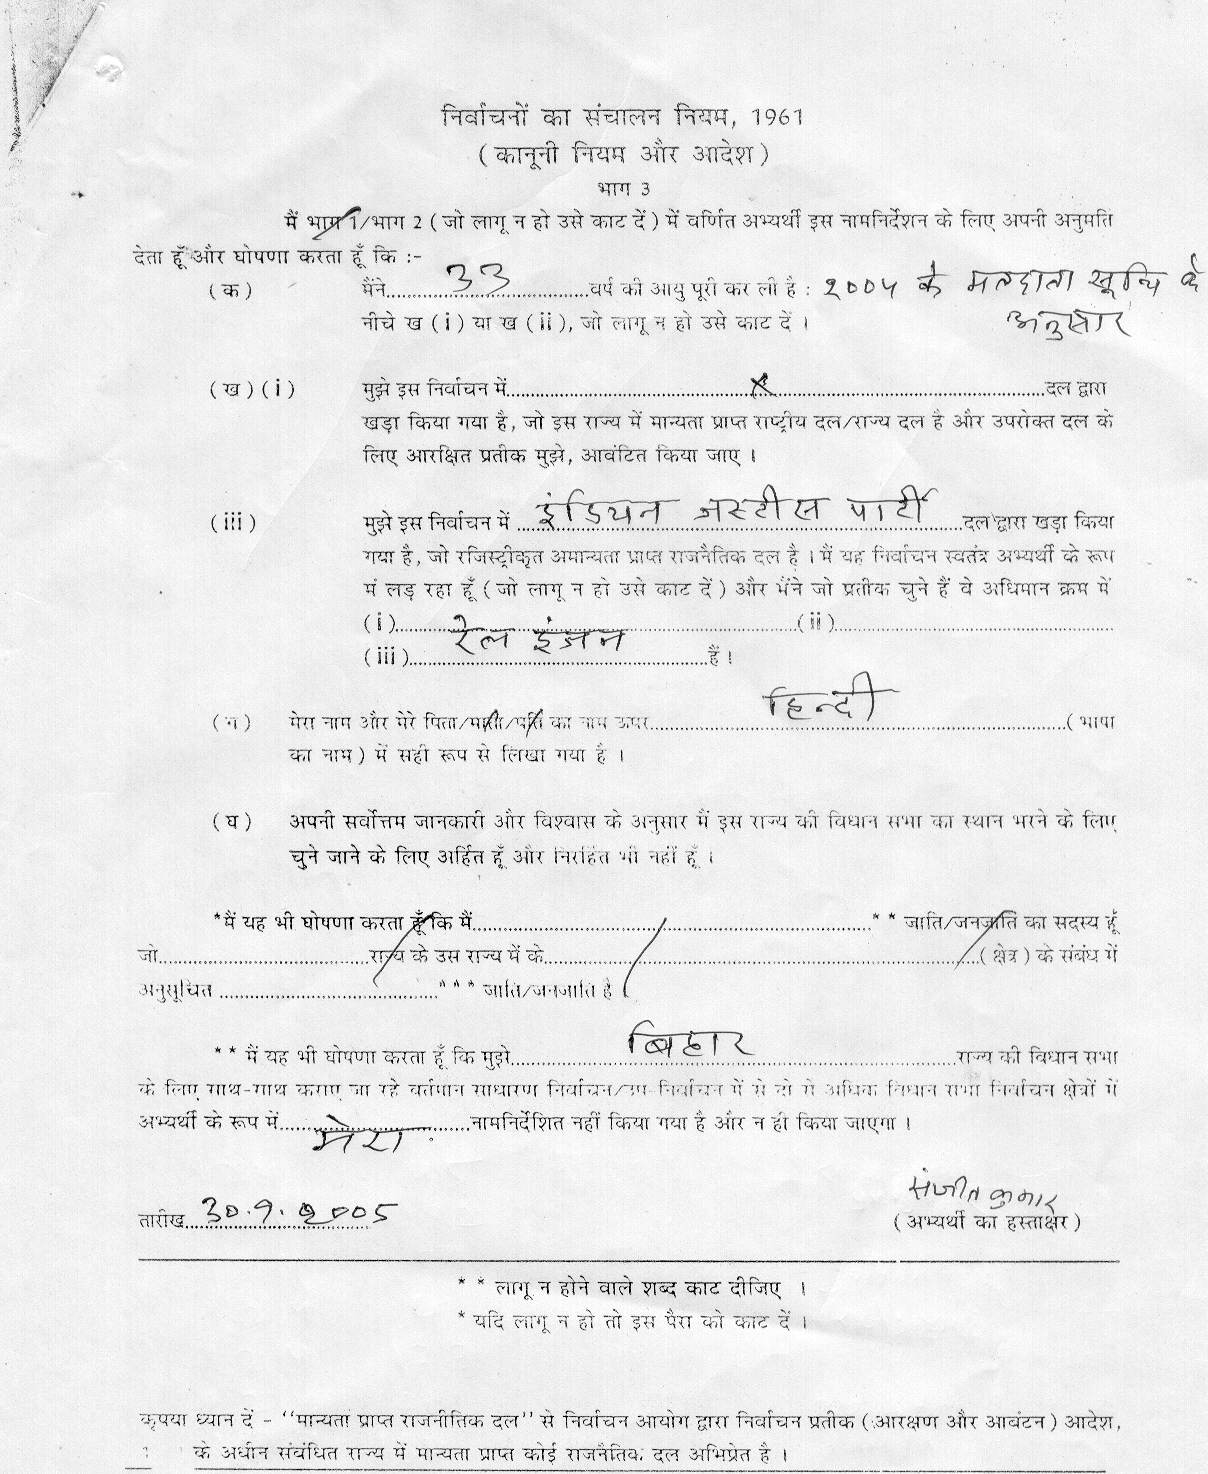 निर्वाचनों का संचालन नियम, 1961
(कानूनी नियम और आदेश)
भाग 3
मैं भाग 1/भाग 2 (जो लागू न हो उसे काट दें) में वर्णित अभ्यर्थी इस नामनिर्देशन के लिए अपनी अनुमति
देता हूँ और घोषणा करता हूँ कि :-
(क) मैंने 33 वर्ष की आयु पूरी कर ली है : 2004 के मतदाता सूचि के
नीचे ख (i) या ख (ii), जो लागू न हो उसे काट दें । अनुसार
(ख)(i) मुझे इस निर्वाचन में x दल द्वारा
खड़ा किया गया है, जो इस राज्य में मान्यता प्राप्त राष्ट्रीय दल/राज्य दल है और उपरोक्त दल के
लिए आरक्षित प्रतीक मुझे, आवंटित किया जाए ।
(iii) मुझे इस निर्वाचन में इंडियन जस्टीस पार्टी दल द्वारा खड़ा किया
गया है, जो रजिस्ट्रीकृत अमान्यता प्राप्त राजनैतिक दल है । मैं यह निर्वाचन स्वतंत्र अभ्यर्थी के रूप
में लड़ रहा हूँ (जो लागू न हो उसे काट दें) और मैंने जो प्रतीक चुने हैं वे अधिमान क्रम में
(i) रेल इंजन (ii)
(iii) हैं ।
(ग) मेरा नाम और मेरे पिता/माता/पति का नाम ऊपर हिन्दी (भाषा
का नाम) में सही रूप से लिखा गया है ।
(घ) अपनी सर्वोत्तम जानकारी और विश्वास के अनुसार मैं इस राज्य की विधान सभा का स्थान भरने के लिए
चुने जाने के लिए अर्हित हूँ और निरर्हित भी नहीं हूँ ।
*मैं यह भी घोषणा करता हूँ कि मैं **जाति/जनजाति का सदस्य हूँ
जो राज्य के उस राज्य में के (क्षेत्र) के संबंध में
अनुसूचित ***जाति/जनजाति है
**मैं यह भी घोषणा करता हूँ कि मुझे बिहार राज्य की विधान सभा
के लिए साथ-साथ कराए जा रहे वर्तमान साधारण निर्वाचन/उप-निर्वाचन में से दो से अधिक विधान सभा निर्वाचन क्षेत्रों में
अभ्यर्थी के रूप में मेरा नामनिर्देशित नहीं किया गया है और न ही किया जाएगा ।
संजीत कुमार
तारीख 30.9.2005 (अभ्यर्थी का हस्ताक्षर)
** लागू न होने वाले शब्द काट दीजिए ।
* यदि लागू न हो तो इस पैरा को काट दें ।
कृपया ध्यान दें - "मान्यता प्राप्त राजनीतिक दल" से निर्वाचन आयोग द्वारा निर्वाचन प्रतीक (आरक्षण और आबंटन) आदेश,
1 के अधीन संबंधित राज्य में मान्यता प्राप्त कोई राजनैतिक दल अभिप्रेत है ।